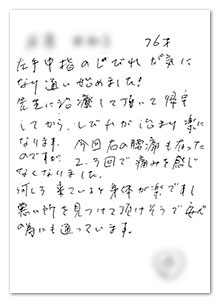 76才
左手中指のしびれが気に
なり通い始めました!
先生に治療して頂いて帰宅
してから、しびれが治まり楽に
なります。今回右の腰痛も有った
のですが、2、3回で痛みを感じ
なくなりました。
何しろ来ていると身体が楽ですし
悪い所を見つけて頂けそうで
の為にも通っています。